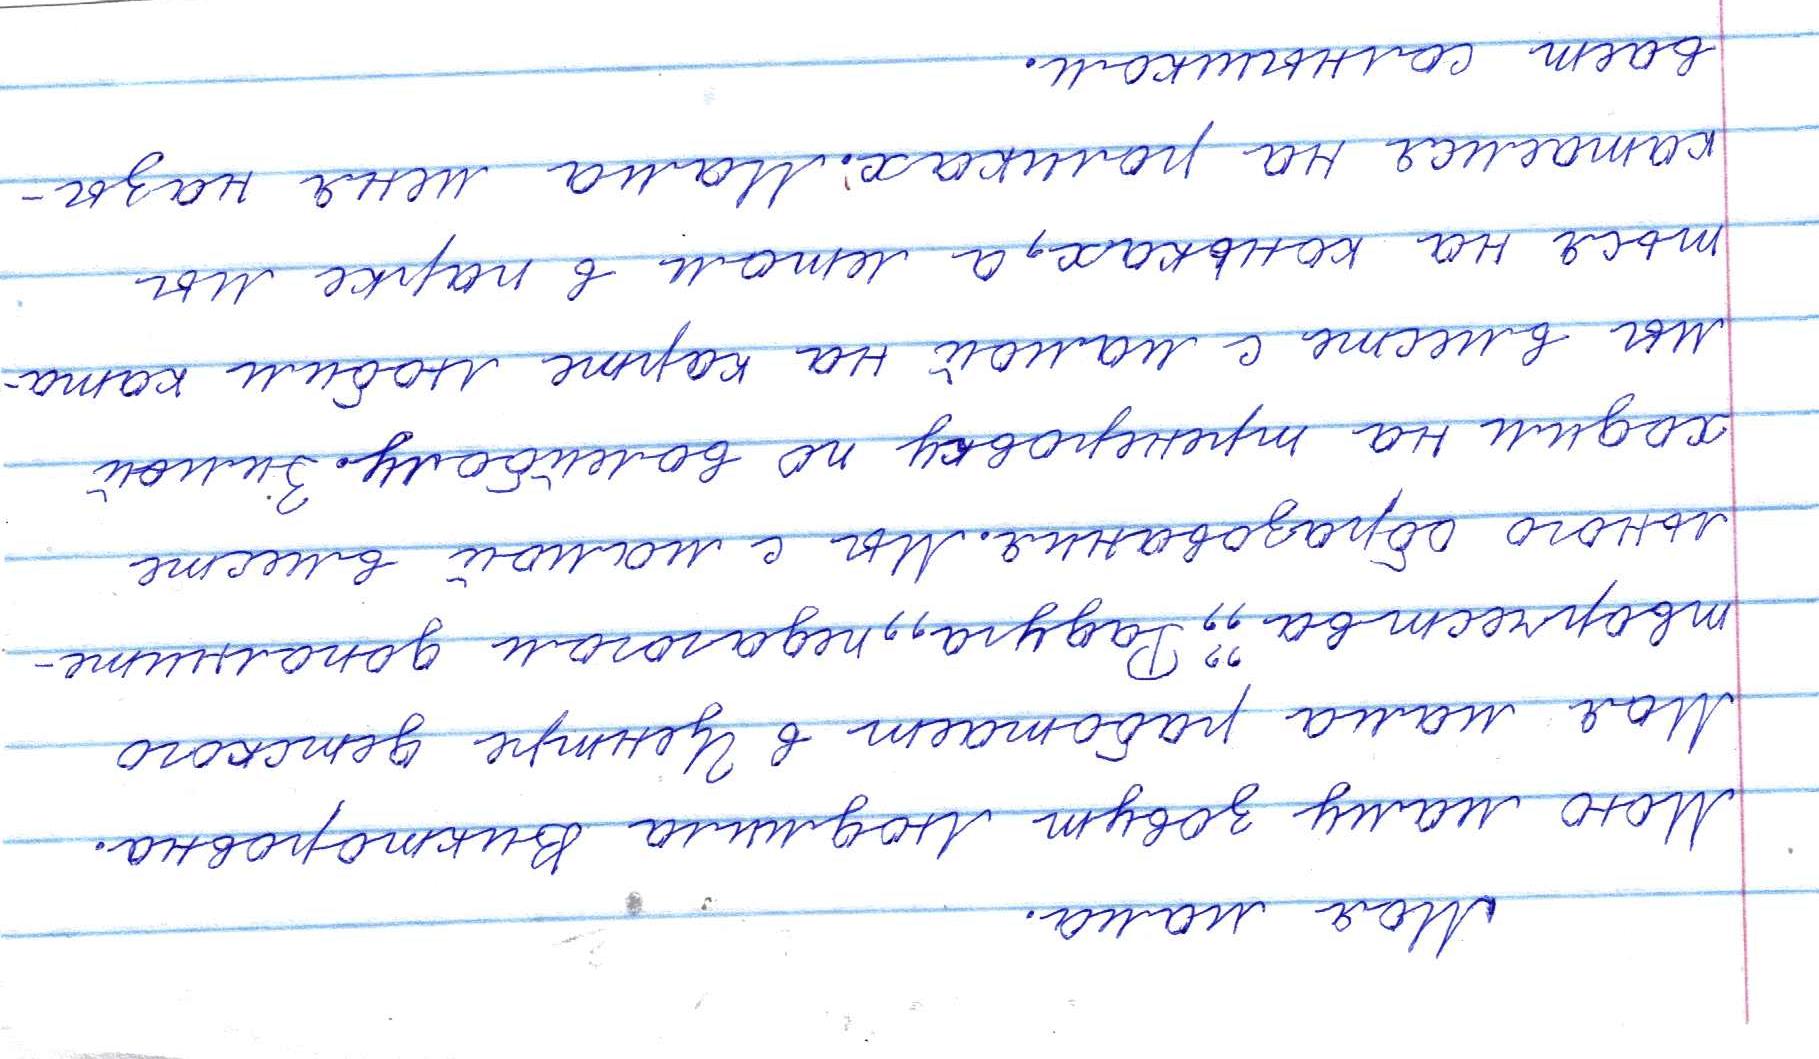 Моя мама.
Мою маму зовут Людмила Викторовна.
Моя мама работает в Центре детского
творчества ,,"Радуга,, педагогом дополните-
льного образования. Мы с мамой вместе
ходим на тренеровку по волейболу. Зимой
мы вместе с мамой на карте любим ката-
ться на коньках, а летом в парке мы
катаемся на роликах. Мама меня назы-
вает солнышком.